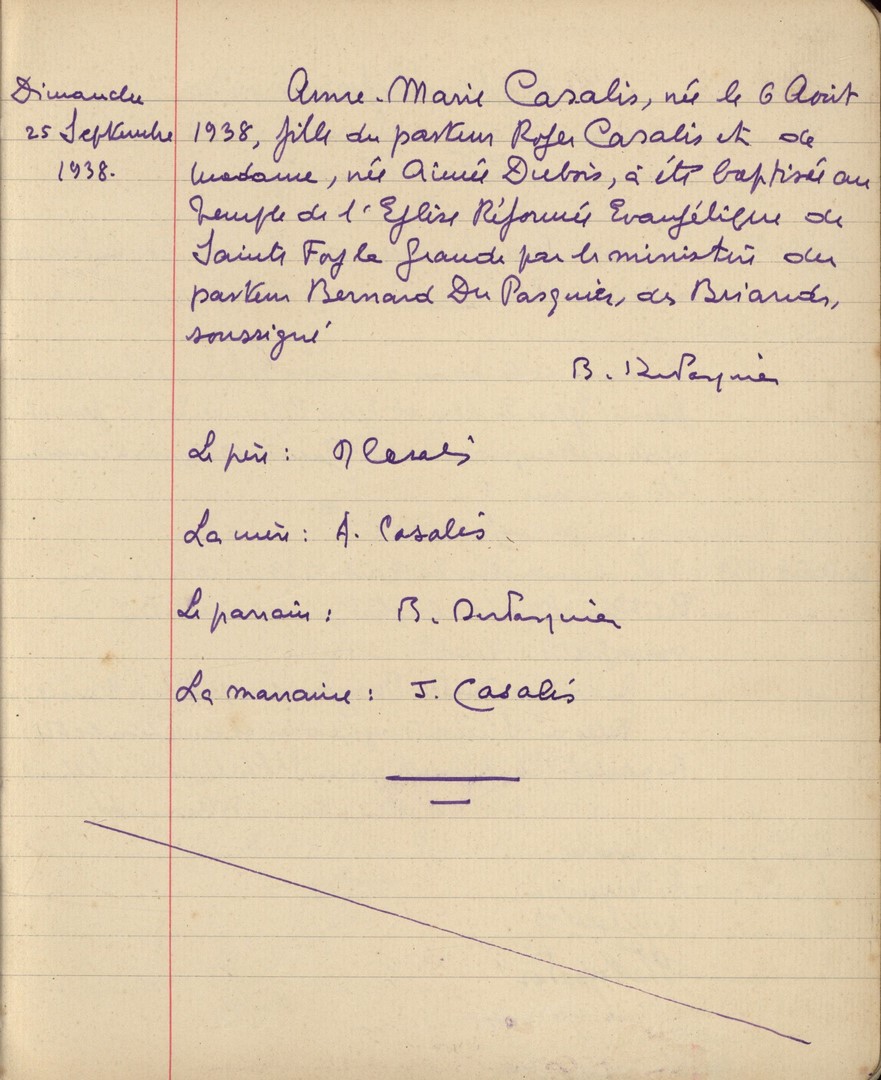 Dimanche
25 Septembre
1938.
Anne-Marie Casalis, née le 6 Août
1938, fille du pasteur Roger Casalis et de
madame, née Aimée Dubois, à été baptisée au
Temple de l'Eglise Réformée Evangélique de
Sainte Foy la Grande par le ministère du
pasteur Bernard Du Pasquier, des Briands,
soussigné
B. DuPasquier
Le père : R Casalis
La mère : A. Casalis
Le parrain : B. DuPasquier
La marraine : J. Casalis